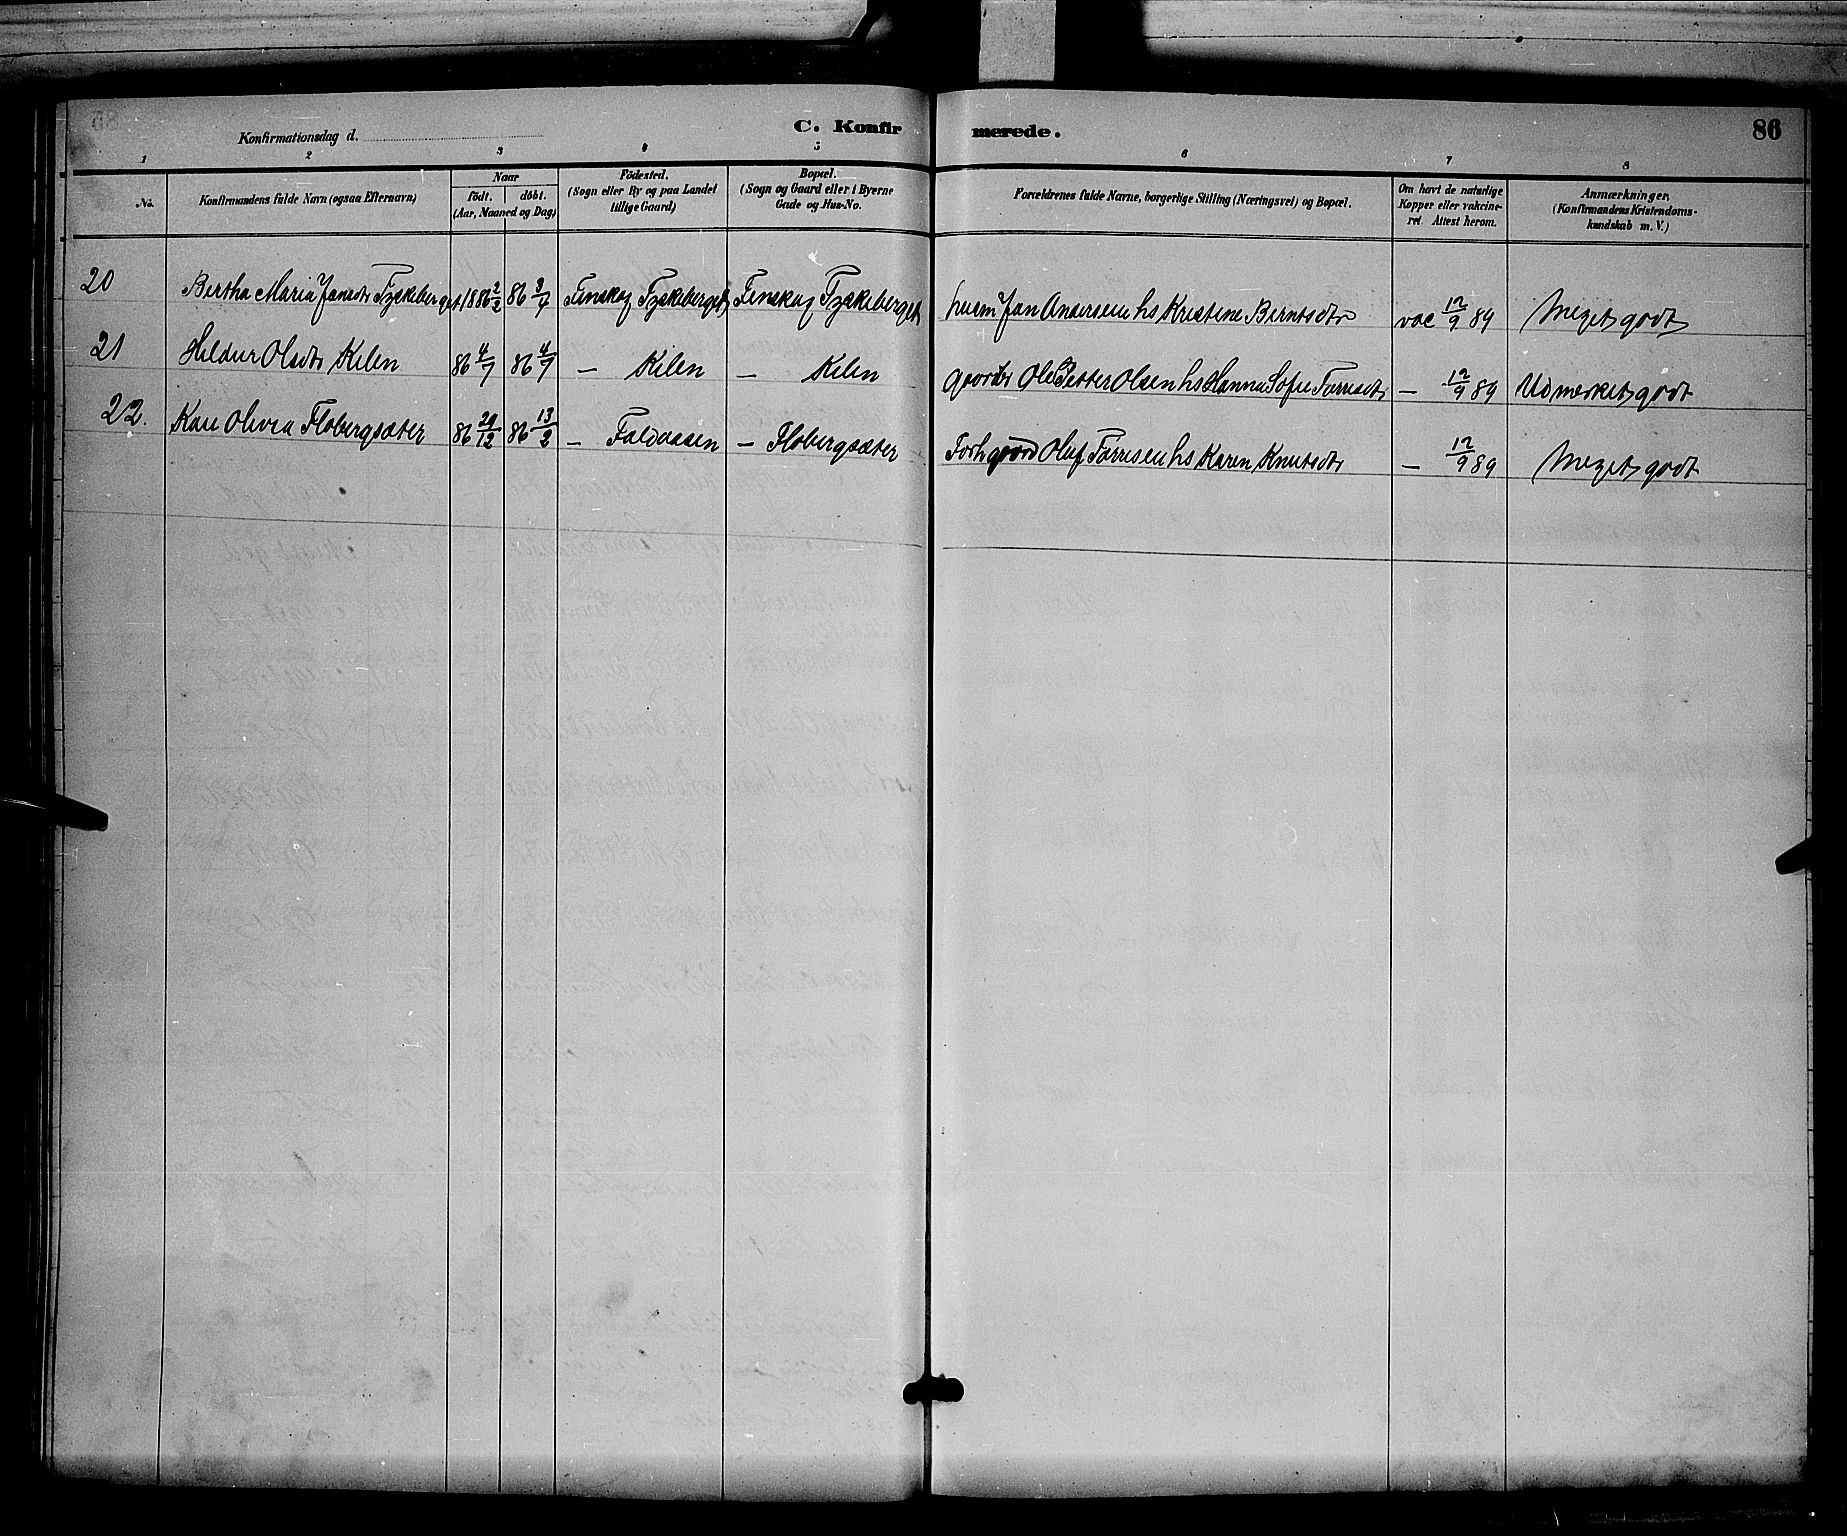 C. Konfir merede. 86
Konfirmationsdag d.
1 2 3 4 5 6 7 8
No.
Konfirmandens fulde Navn (ogsaa Efternavn)
Naar
födt. döbt.
(Aar, Maaned og Dag)
Födested.
(Sogn eller By og paa Landet
tillige Gaard)
Bopæl.
(Sogn og Gaard eller i Byerne
Gade og Hus-No.
Forældrenes fulde Navne, borgerlige Stilling (Næringsvei) og Bopæl.
Om havt de naturlige
Kopper eller vakcine-
ret Attest herom.
Anmærkninger.
(Konfirmandens Kristendoms-
kundskab m. V.)
20 Bertha Maria Jansdtr Tyskeberget 1886 2/2 86 3/4 Finskog Tyskeberget Finskog Tyskeberget husm Jan Andersen hs Kristine Berntsdtr vac 12/9 89 Meget godt
21 Hildur Olsdtr Kilen 86 4/7 86 4/9 — Kilen — Kilen Gaardbr Ole Petter Olsen hs Hanna Sofie Tarresdtr — 12/9 89 Udmerket godt
22. Kari Olivia Flobergsæter 86 29/12 86 13/2 — Faldaasen — Flobergsæter Forh Oluf Tarresen hs Karen Knutsdtr — 12/9 89 Meget godt